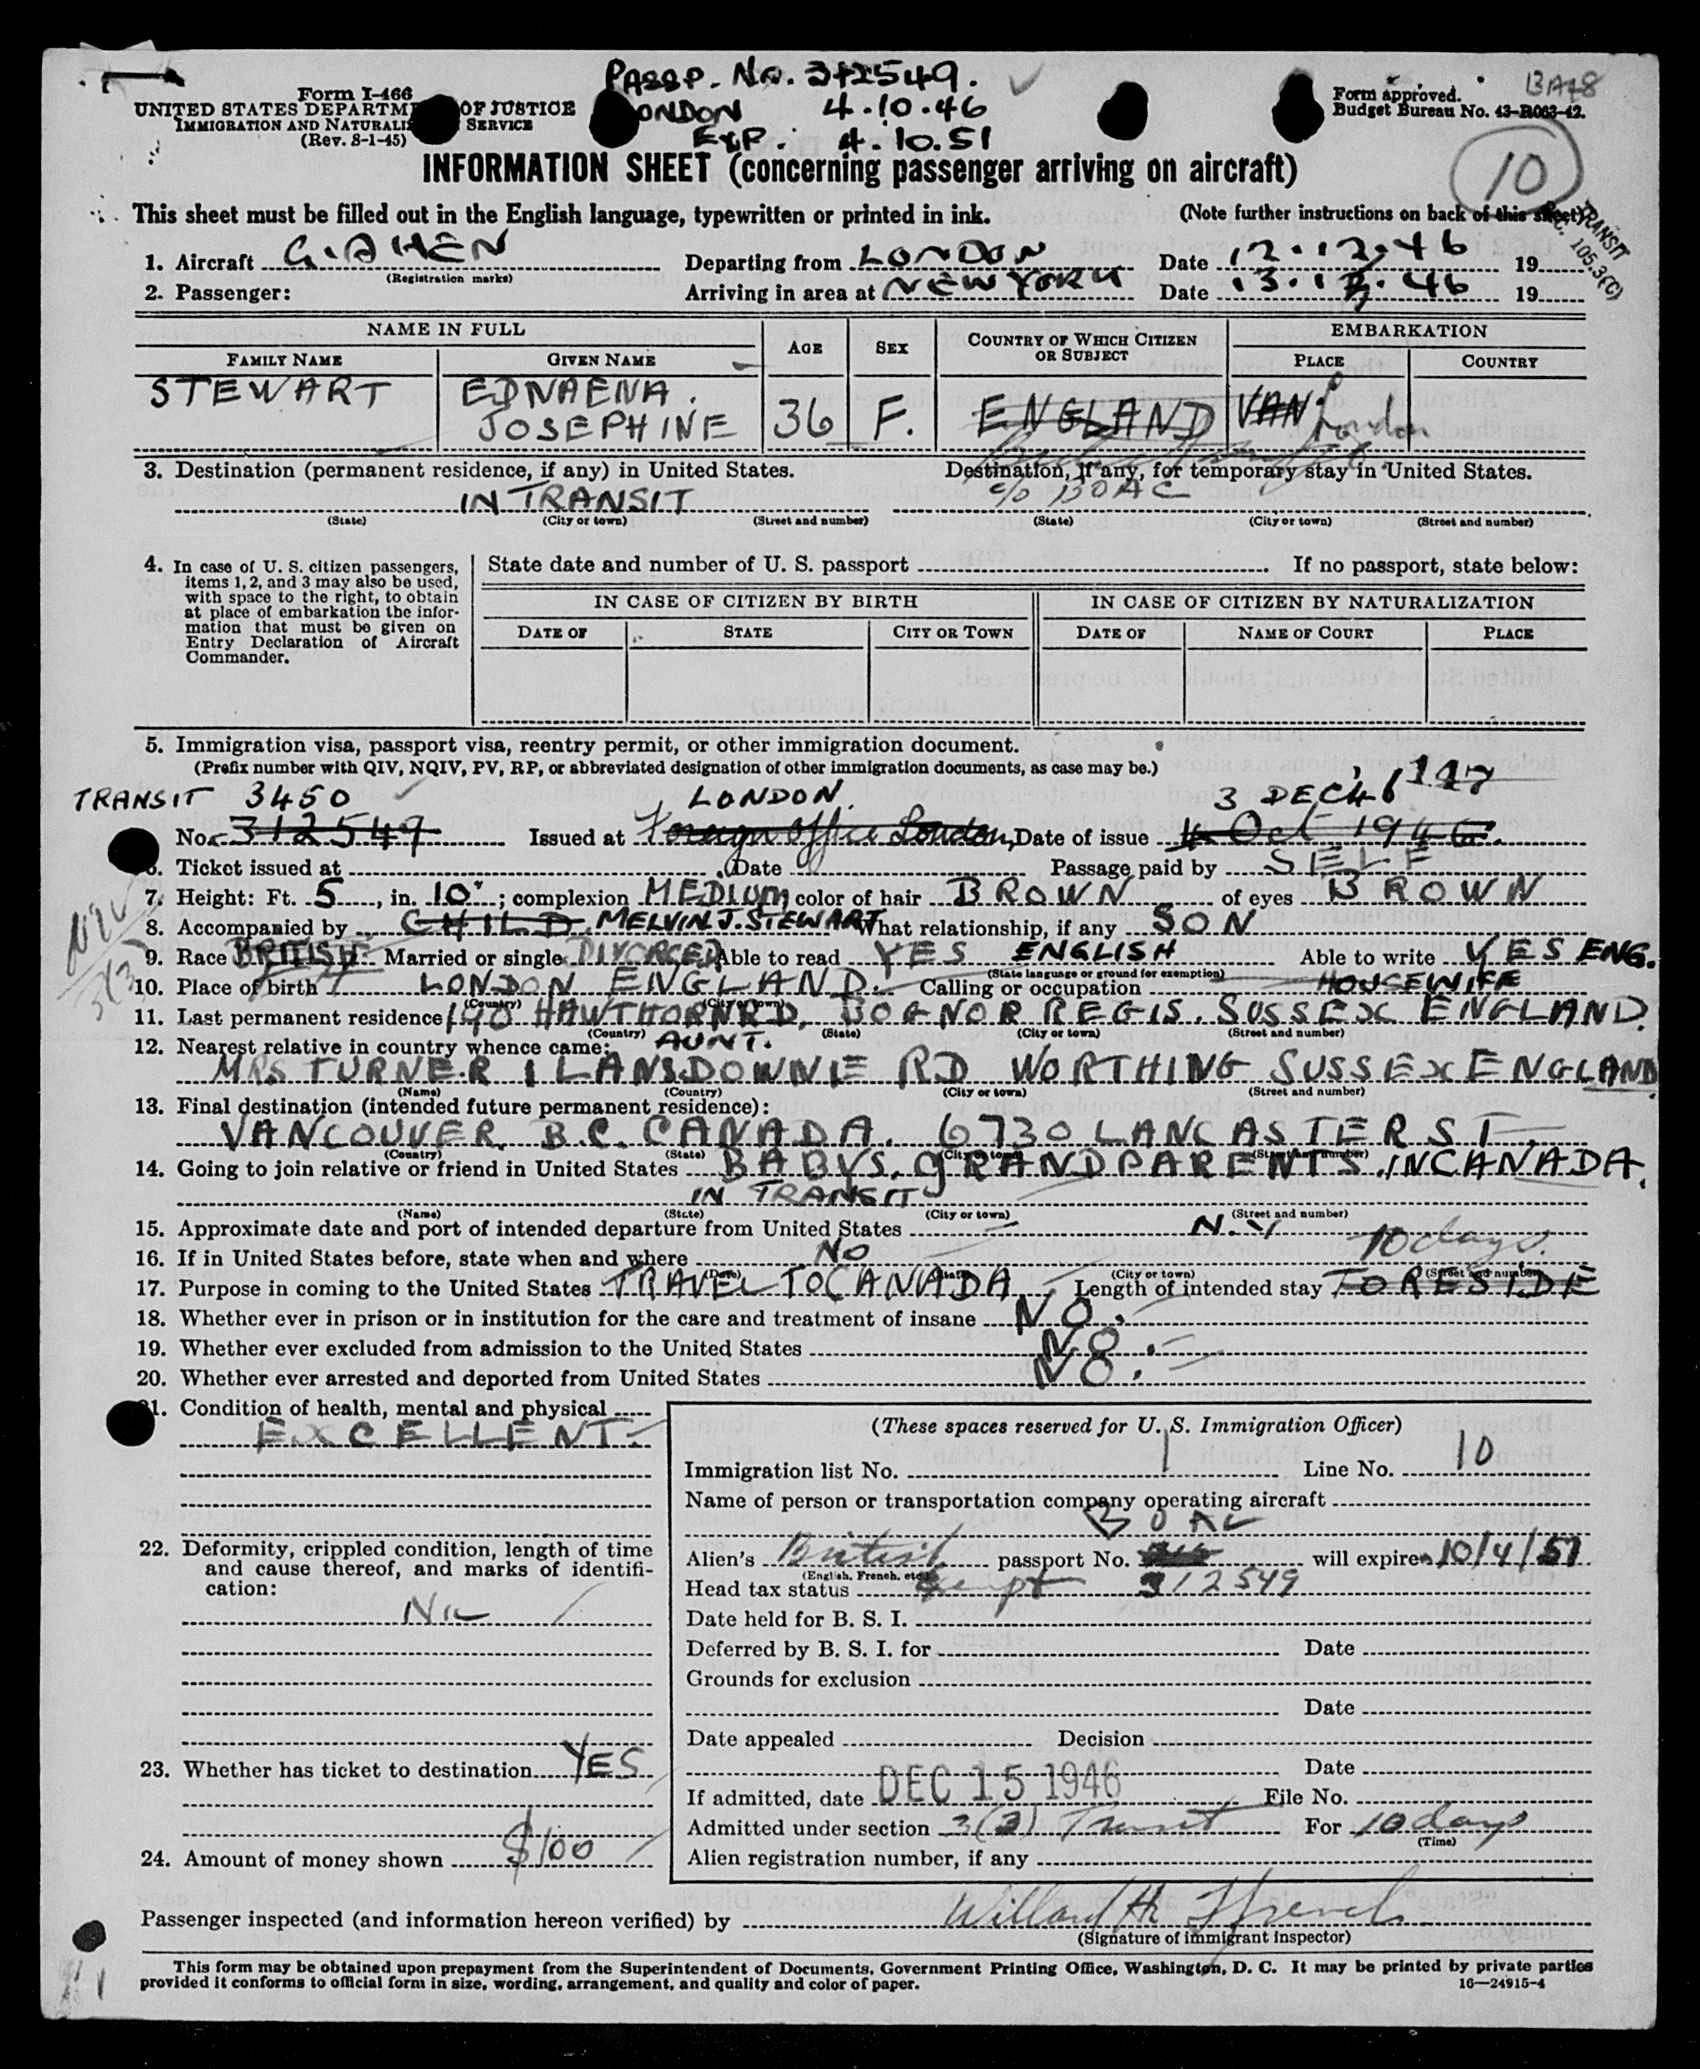 PASSP. No. 312549.
LONDON 4.10.46
EXP. 4.10.51
Form I-466
UNITED STATES DEPARTMENT OF JUSTICE
IMMIGRATION AND NATURALIZATION SERVICE
(Rev. 8-1-45)
Form approved.
Budget Bureau No. 43-R063-42.
10
INFORMATION SHEET (concerning passenger arriving on aircraft)
This sheet must be filled out in the English language, typewritten or printed in ink. (Note further instructions on back of this sheet)
TRANSIT
SEC. 105.3(C)
1. Aircraft G.AHEN Departing from LONDON Date 12.12.46 19
(Registration marks)
2. Passenger: Arriving in area at NEW YORK Date 13.12.46 19
NAME IN FULL AGE SEX COUNTRY OF WHICH CITIZEN OR SUBJECT EMBARKATION
FAMILY NAME GIVEN NAME PLACE COUNTRY
STEWART EDNAENA. JOSEPHINE 36 F. ENGLAND VAN. London
3. Destination (permanent residence, if any) in United States. Destination, if any, for temporary stay in United States.
IN TRANSIT c/o BOAC
(State) (City or town) (Street and number) (State) (City or town) (Street and number)
4. In case of U. S. citizen passengers, items 1, 2, and 3 may also be used, with space to the right, to obtain at place of embarkation the information that must be given on Entry Declaration of Aircraft Commander.
State date and number of U. S. passport If no passport, state below:
IN CASE OF CITIZEN BY BIRTH IN CASE OF CITIZEN BY NATURALIZATION
DATE OF STATE CITY OR TOWN DATE OF NAME OF COURT PLACE
5. Immigration visa, passport visa, reentry permit, or other immigration document.
(Prefix number with QIV, NQIV, PV, RP, or abbreviated designation of other immigration documents, as case may be.)
TRANSIT 3450 LONDON. 3 DEC 46
No. 312549 Issued at Foreign Office London, Date of issue 4 Oct 1946.
6. Ticket issued at Date Passage paid by SELF
7. Height: Ft. 5, in. 10"; complexion MEDIUM color of hair BROWN of eyes BROWN
8. Accompanied by CHILD. MELVIN J. STEWART What relationship, if any SON
9. Race BRITISH. Married or single DIVORCED Able to read YES ENGLISH Able to write YES ENG.
(State language or ground for exemption)
10. Place of birth LONDON ENGLAND. Calling or occupation HOUSEWIFE
(Country) (City or town)
11. Last permanent residence 190 HAWTHORN RD, BOGNOR REGIS. SUSSEX ENGLAND.
(Country) (State) (City or town) (Street and number)
12. Nearest relative in country whence came: AUNT.
MRS TURNER 1 LANSDOWNE RD WORTHING SUSSEX ENGLAND
(Name) (Country) (City or town) (Street and number)
13. Final destination (intended future permanent residence):
VANCOUVER B.C. CANADA. 6730 LANCASTER ST.
(Country) (State) (City or town) (Street and number)
14. Going to join relative or friend in United States BABYS. GRANDPARENTS. IN CANADA.
IN TRANSIT
(Name) (State) (City or town) (Street and number)
15. Approximate date and port of intended departure from United States N.Y
16. If in United States before, state when and where NO 10 days.
(Date) (State) (City or town) (Street and number)
17. Purpose in coming to the United States TRAVEL TO CANADA Length of intended stay TO RESIDE
18. Whether ever in prison or in institution for the care and treatment of insane NO.
19. Whether ever excluded from admission to the United States NO.
20. Whether ever arrested and deported from United States NO.
21. Condition of health, mental and physical
EXCELLENT.
22. Deformity, crippled condition, length of time and cause thereof, and marks of identification:
NIL
23. Whether has ticket to destination YES
24. Amount of money shown $100
(These spaces reserved for U. S. Immigration Officer)
Immigration list No. 1 Line No. 10
Name of person or transportation company operating aircraft
BOAC
Alien's British passport No. will expire 10/4/51
(English, French, etc.)
Head tax status Exempt 312549
Date held for B. S. I.
Deferred by B. S. I. for Date
Grounds for exclusion
Date
Date appealed Decision
Date
If admitted, date DEC 15 1946 File No.
Admitted under section 3(3) Transit For 10 days
(Time)
Alien registration number, if any
Passenger inspected (and information hereon verified) by Willard H French
(Signature of immigrant inspector)
This form may be obtained upon prepayment from the Superintendent of Documents, Government Printing Office, Washington, D. C. It may be printed by private parties
provided it conforms to official form in size, wording, arrangement, and quality and color of paper. 16—24915-4